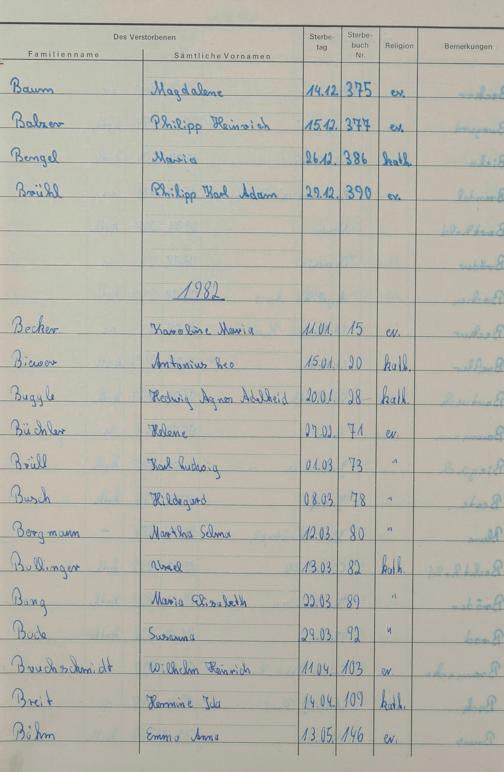 Des Verstorbenen Sterbe- Sterbe- Religion Bemerkungen
Familienname Sämtliche Vornamen tag buch Nr.
Baum Magdalene 14.12. 375 ev.
Balzer Philipp Heinrich 15.12. 377 ev.
Bengel Maria 26.12. 386 kath.
Brühl Philipp Karl Adam 29.12. 390 ev.
1982
Becker Karoline Maria 11.01. 15 ev.
Biewer Antonius Leo 15.01. 20 kath.
Buggle Hedwig Agnes Adelheid 20.01. 28 kath.
Büchler Helene 27.02. 71 ev.
Brüll Karl Ludwig 01.03. 73 "
Busch Hildegard 08.03. 78 "
Bergmann Martha Selma 12.03. 80 "
Bullinger Ursel 13.03. 82 kath.
Bung Maria Elisabeth 22.03. 89 "
Bode Susanna 29.03. 92 "
Bruchschmidt Wilhelm Heinrich 11.04. 103 ev.
Breit Hermine Ida 14.04. 109 kath.
Böhm Emma Anna 13.05. 146 ev.